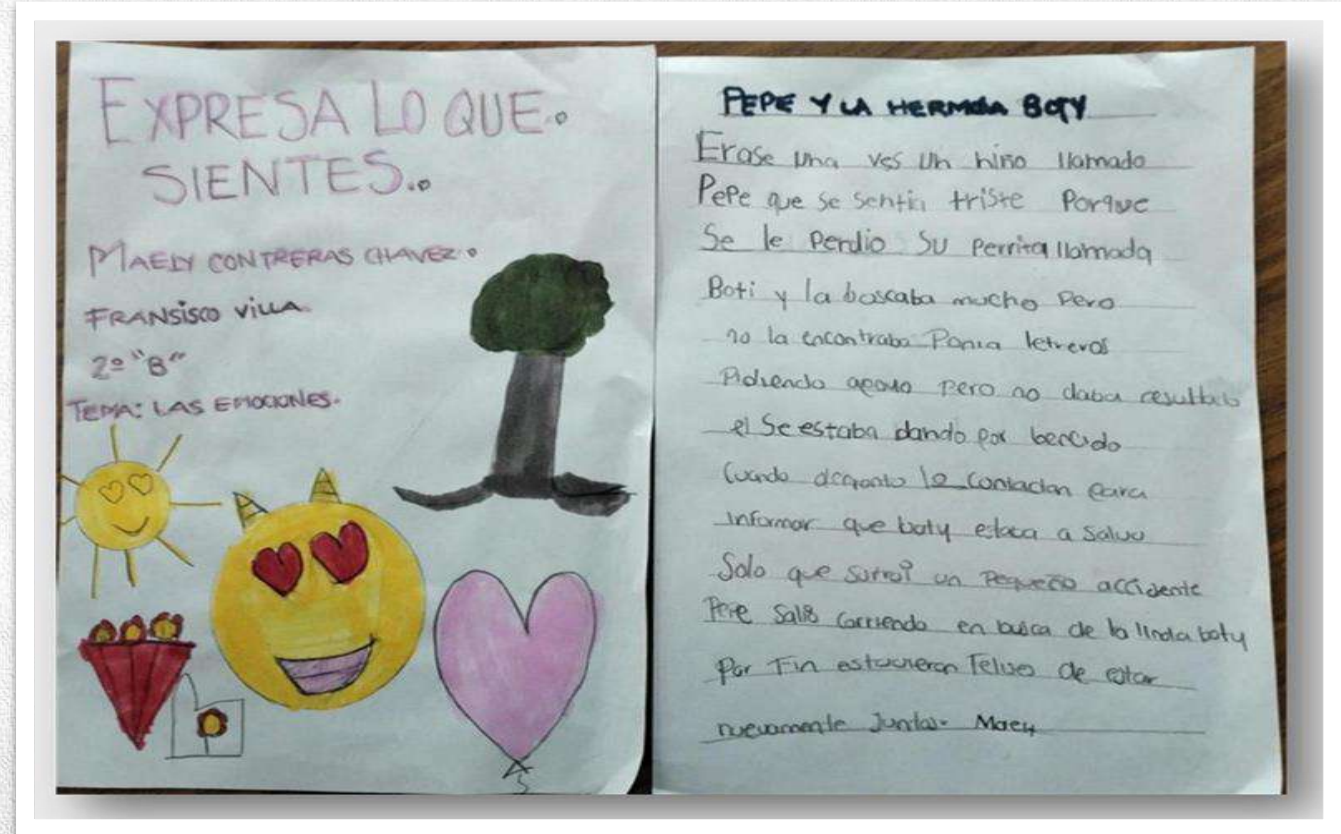 EXPRESA LO QUE..
SIENTES..
MAELY CONTRERAS CHAVEZ.
FRANSISCO VILLA.
2º "B"
TEMA: LAS EMOCIONES.
PEPE Y LA HERMOSA BOTY
Erase una ves un niño llamado
Pepe que se sentia triste Porque
Se le Perdio Su Perrita llamada
Boti y la boscaba mucho Pero
no la encontraba Ponia letreros
Pidiendo apollo pero no daba resultado
el Se estaba dando por bencido
Cuando deponto le contactan para
informar que boty estaca a Salvo
Solo que un Pequeño accidente
Pepe Salio Corriendo en busca de la linda boty
Por Fin estuvieron de estar
nuevamente Juntos. Maely